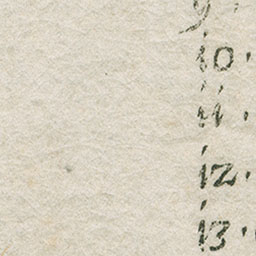 9.
10.
11.
12.
13.